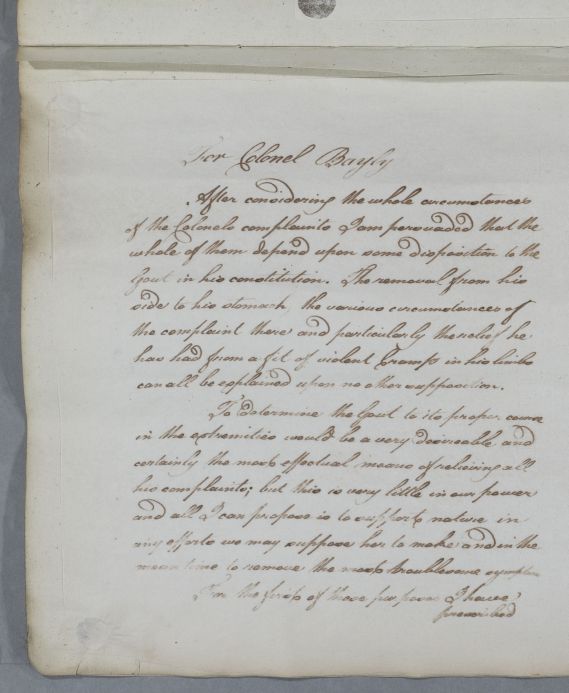 For Colonel Bayly
After considering the whole circumstances
of the Colonels complaints I am persuaded that the
whole of them depend upon some disposition to the
Gout in his constitution. The removal from his
side to his stomach, the various circumstances of
the complaint there and particularly the relief he
has had from a fit of violent Cramps in his limbs
can all be explained upon no other supposition.
To determine the Gout to its proper course
in the extremities would be a very desireable and
certainly the most effectual means of relieving all
his complaints; but this is very little in our power
and all I can propose is to support nature in
any efforts we may suppose her to make and in the
mean time to remove the most troublesome symptoms
For the first of these purposes I have
prescribed